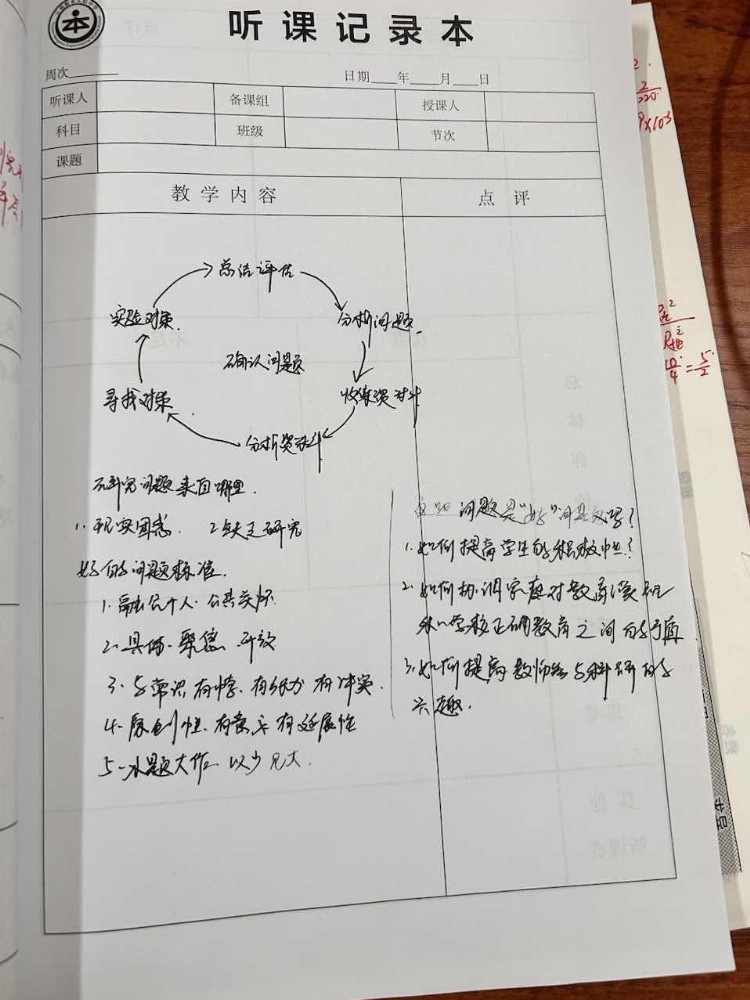 听课记录本
周次
日期 年 月 日
听课人 备课组 授课人
科目 班级 节次
课题
教学内容 点评
总结评估
实验对策. 分析问题.
确认问题
寻找对策 收集资料
分析资料
研究问题来自哪里.
1. 现实困惑 2. 缺乏研究
好的问题标准.
1. 融合个人、公共关怀
2. 具体、聚焦、开放
3. 与常识有悖. 有张力 有冲突
4. 原创性. 有意义 有延展性
5. 小题大作 以少见大.
问题是"好"问题吗?
1. 如何提高学生的积极性?
2. 如何协调家庭对教育漠视
和学校正确教育之间的矛盾
3. 如何提高教师参与科研的
兴趣.
其他
听课者